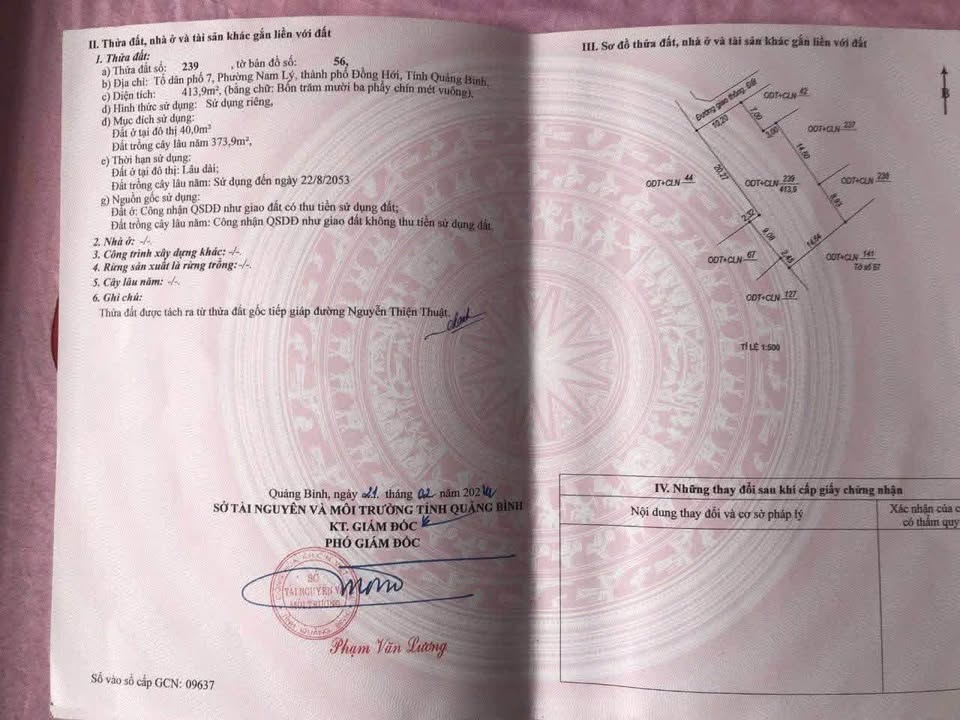 II. Thửa đất, nhà ở và tài sản khác gắn liền với đất
1. Thửa đất:
a) Thửa đất số: 239 , tờ bản đồ số: 56,
b) Địa chỉ: Tổ dân phố 7, Phường Nam Lý, thành phố Đồng Hới, Tỉnh Quảng Bình,
c) Diện tích: 413,9m², (bằng chữ: Bốn trăm mười ba phẩy chín mét vuông),
d) Hình thức sử dụng: Sử dụng riêng,
đ) Mục đích sử dụng:
Đất ở tại đô thị 40,0m²
Đất trồng cây lâu năm 373,9m²,
e) Thời hạn sử dụng:
Đất ở tại đô thị: Lâu dài;
Đất trồng cây lâu năm: Sử dụng đến ngày 22/8/2053
g) Nguồn gốc sử dụng:
Đất ở: Công nhận QSDĐ như giao đất có thu tiền sử dụng đất;
Đất trồng cây lâu năm: Công nhận QSDĐ như giao đất không thu tiền sử dụng đất.
2. Nhà ở: -/-.
3. Công trình xây dựng khác: -/-.
4. Rừng sản xuất là rừng trồng: -/-.
5. Cây lâu năm: -/-.
6. Ghi chú:
Thửa đất được tách ra từ thửa đất gốc tiếp giáp đường Nguyễn Thiện Thuật.
Quảng Bình, ngày 21 tháng 02 năm 202
SỞ TÀI NGUYÊN VÀ MÔI TRƯỜNG TỈNH QUẢNG BÌNH
KT. GIÁM ĐỐC
PHÓ GIÁM ĐỐC
SỞ
TÀI NGUYÊN VÀ
MÔI TRƯỜNG
TỈNH QUẢNG BÌNH
Phạm Văn Lương
Số vào sổ cấp GCN: 09637
III. Sơ đồ thửa đất, nhà ở và tài sản khác gắn liền với đất
B
Đường giao thông. Đất
10,20
7,00
3,00
ODT+CLN 42
ODT+CLN 237
14,60
20,27
ODT+CLN 44
ODT+CLN 239
413,9
ODT+CLN 238
8,93
2,52
9,08
2,45
14,64
ODT+CLN 67
ODT+CLN 141
Tờ số 57
ODT+CLN 127
TỈ LỆ 1:500
IV. Những thay đổi sau khi cấp giấy chứng nhận
Nội dung thay đổi và cơ sở pháp lý
Xác nhận của c
có thẩm quy